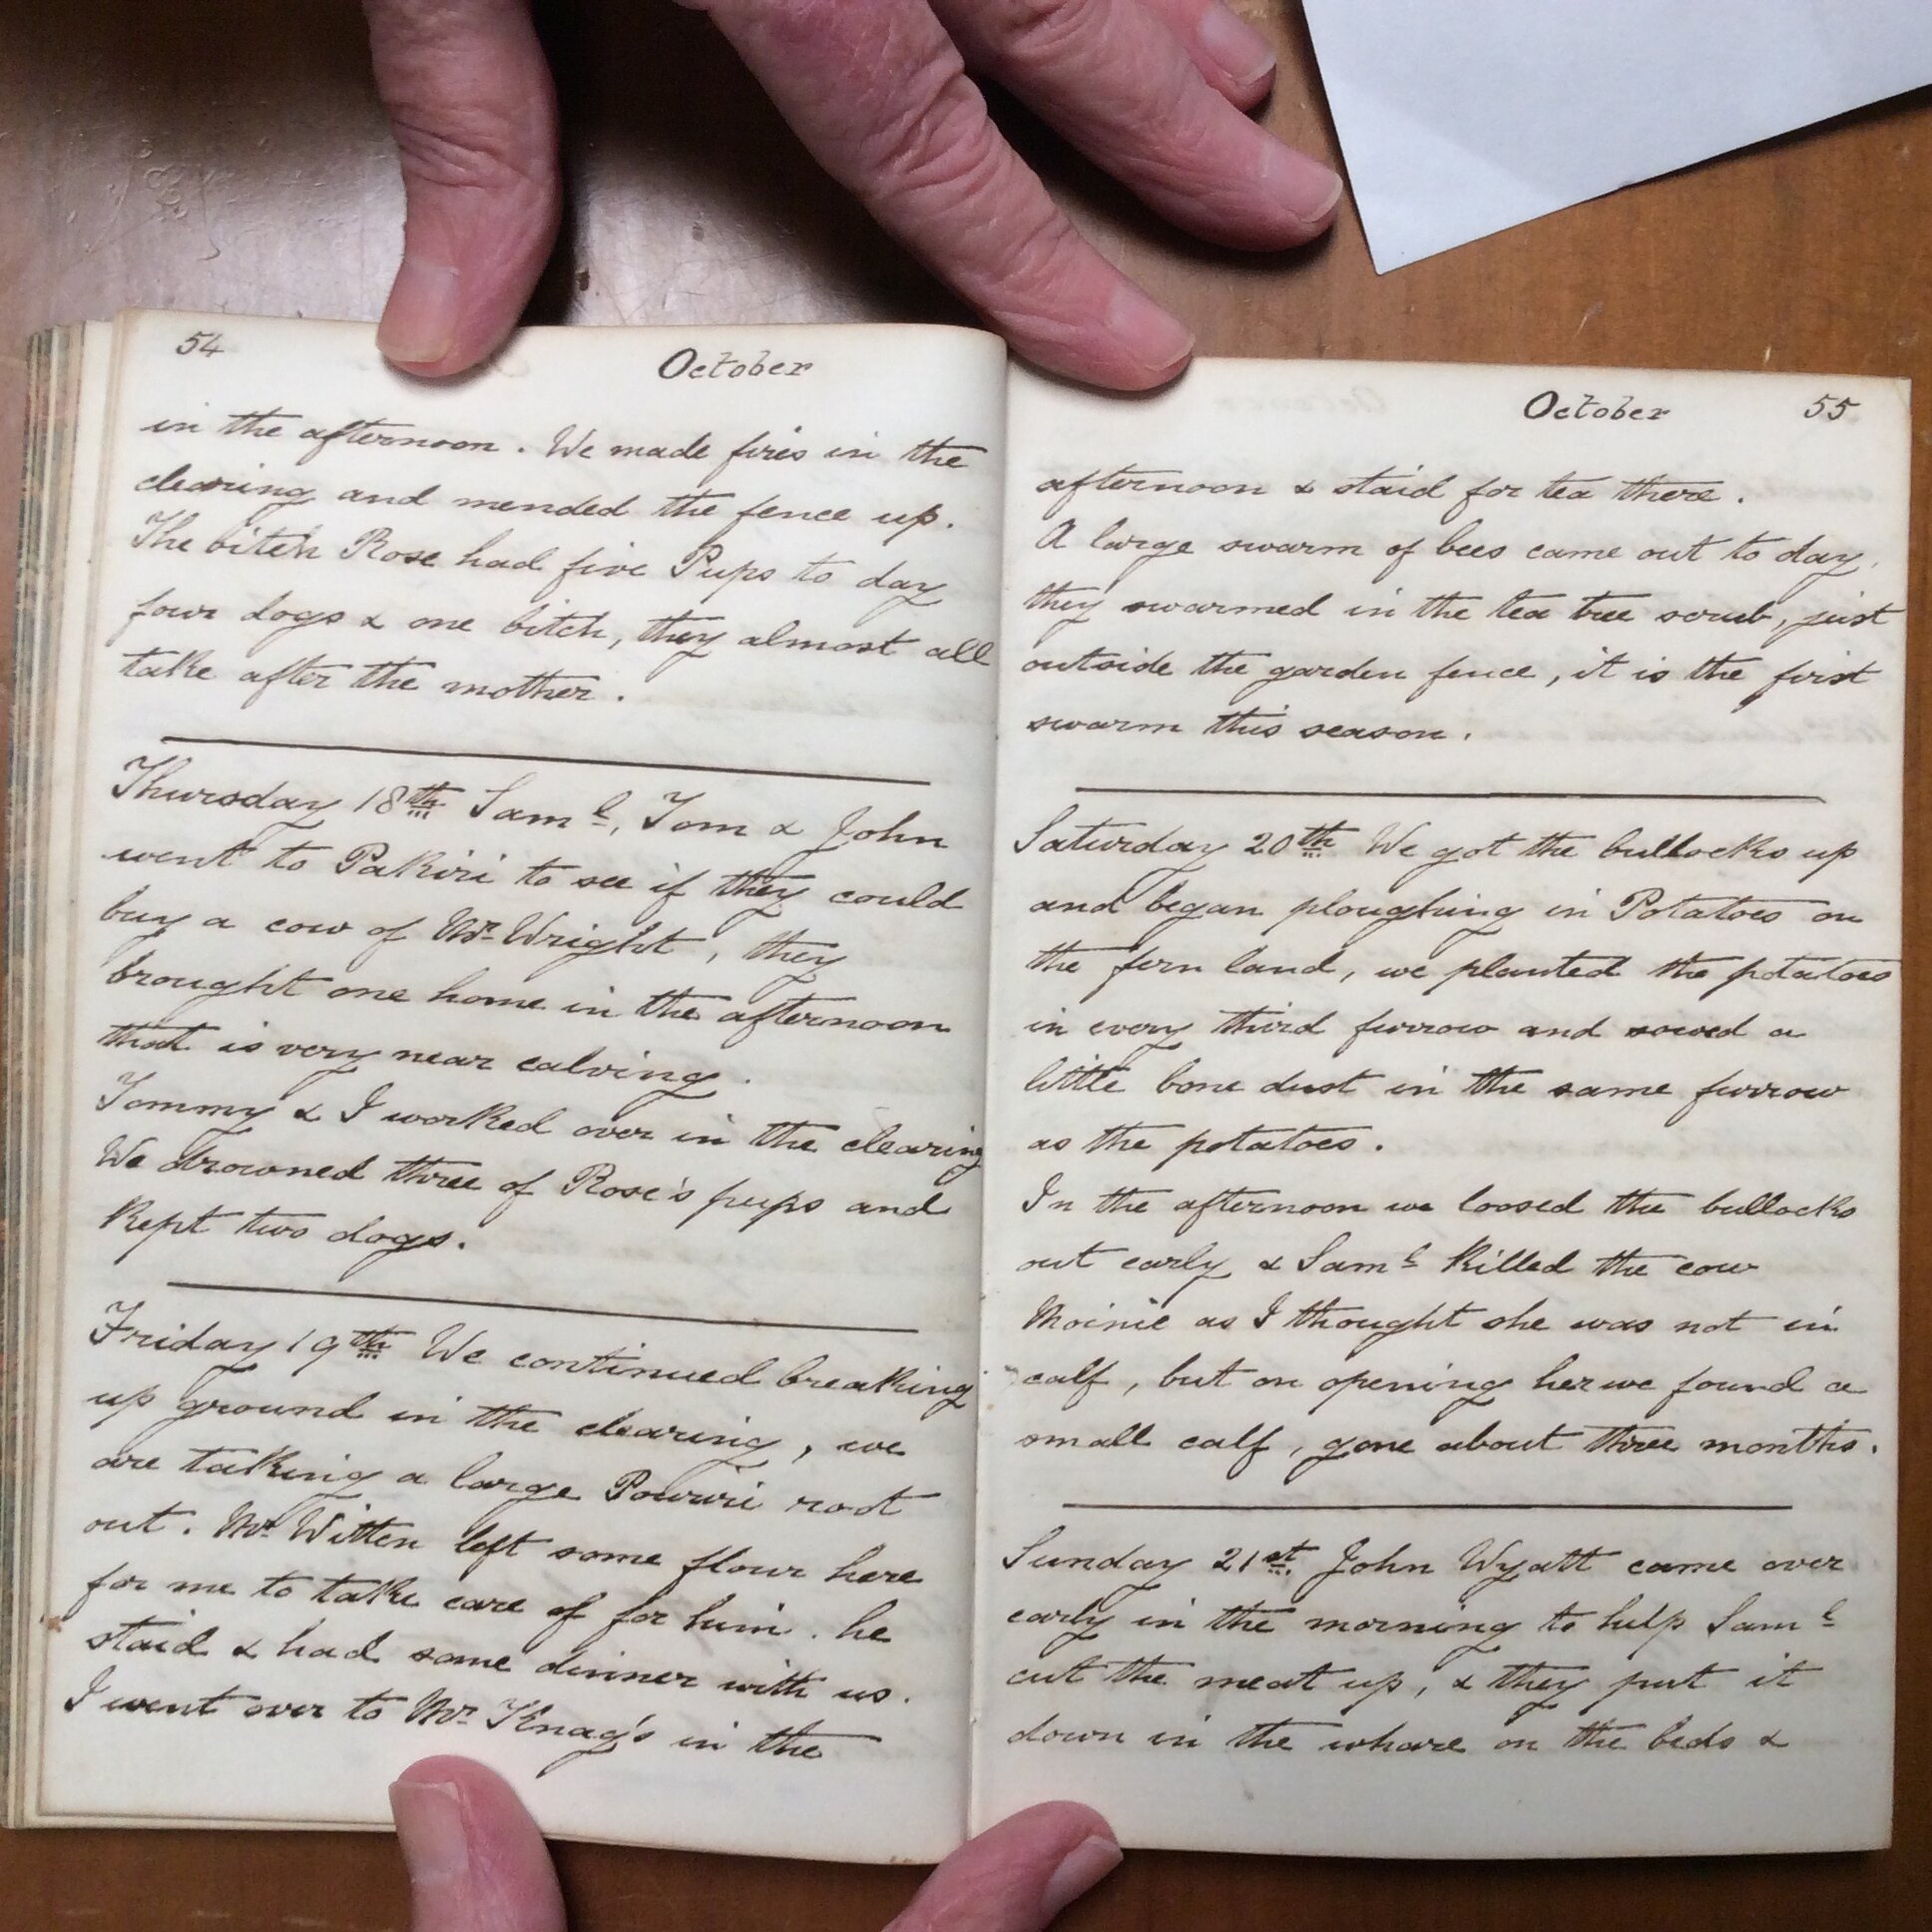 54
October
in the afternoon. We made fires in the
clearing and mended the fence up.
The bitch Rose had five Pups to day
four dogs & one bitch, they almost all
take after the mother.
Thursday 18th Saml, Tom & John
went to Pakiri to see if they could
buy a cow of Mr Wright, they
brought one home in the afternoon
that is very near calving.
Tommy & I worked over in the clearing
We drowned three of Rose's pups and
kept two dogs.
Friday 19th We continued breaking
up ground in the clearing, we
are taking a large Powriri root
out. Mr Witten left some flour here
for me to take care of for him. he
staid & had some dinner with us.
I went over to Mr Knag's in the
October 55
afternoon & staid for tea there.
A large swarm of bees came out to day,
they swarmed in the tea tree scrub, just
outside the garden fence, it is the first
swarm this season.
Saturday 20th We got the bullocks up
and began ploughing in Potatoes on
the fern land, we planted the potatoes
in every third furrow and sowed a
little bone dust in the same furrow
as the potatoes.
In the afternoon we loosed the bullocks
out early & Saml killed the cow
as I thought she was not in
calf, but on opening her we found a
small calf, gone about three months.
Sunday 21st. John Wyatt came over
early in the morning to help Saml
cut the meat up, & they put it
down in the whare on the beds &